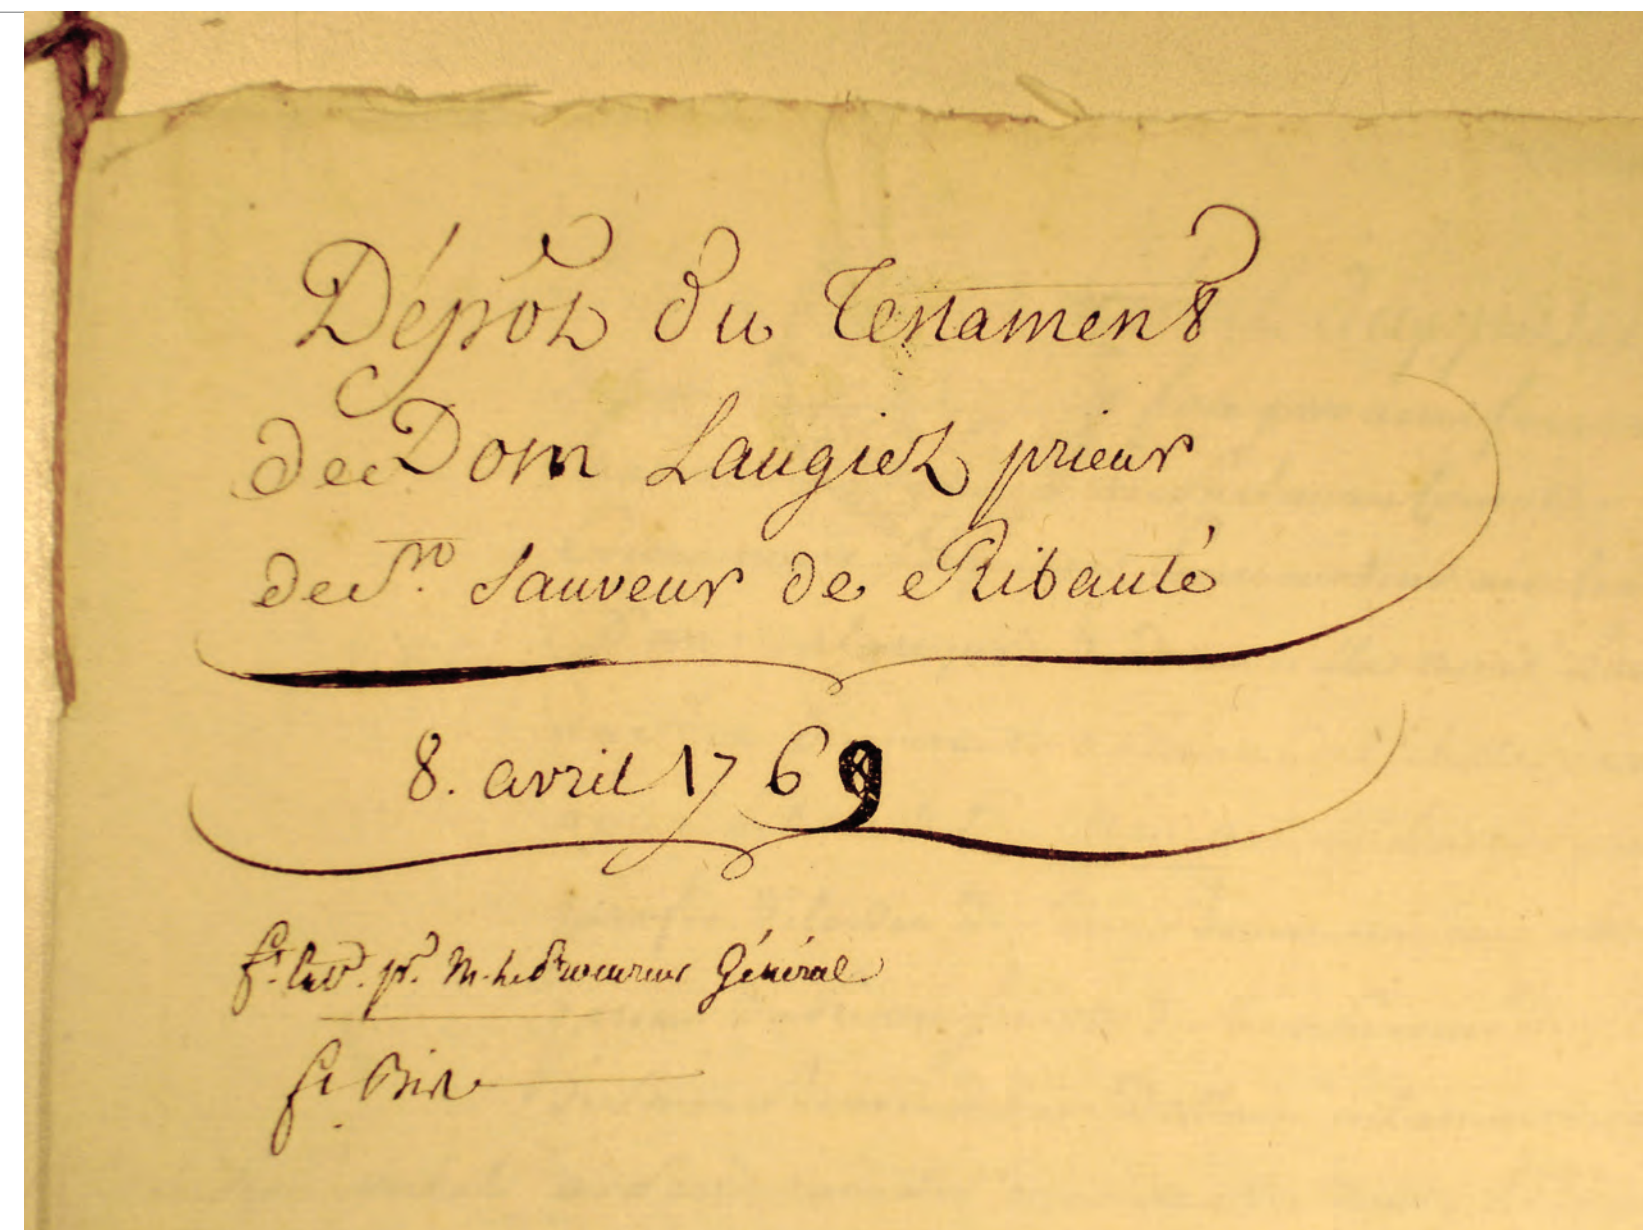 Dépôt du Testament
de Dom Laugier prieur
de St. Sauveur de Ribauté
8. avril 1769
pr. M. le Procureur Général